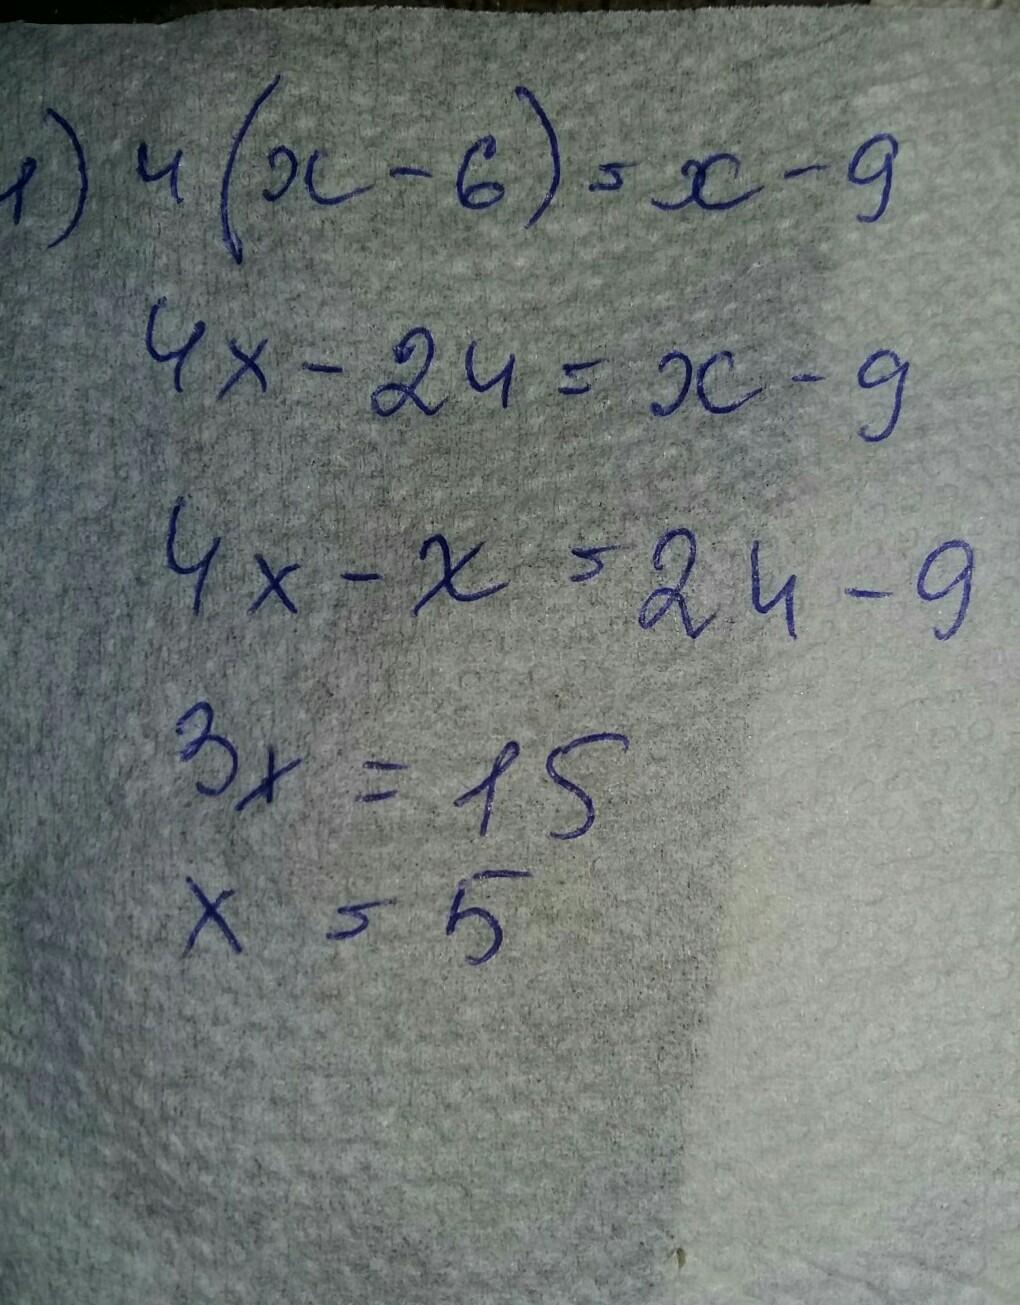 1) 4(x-6)=x-9
4x-24=x-9
4x-x=24-9
3x=15
x=5